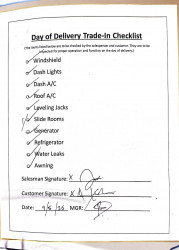 Day of Delivery Trade-In Checklist
(The items listed below are to be checked by the salesperson and customer. They are to be
inspected for proper operation and function on the day of delivery.)
Windshield
Dash Lights
Dash A/C
Roof A/C
Leveling Jacks
Slide Rooms
Generator
Refrigerator
Water Leaks
Awning
Salesman Signature: X
Customer Signature: X
Date: MGR: